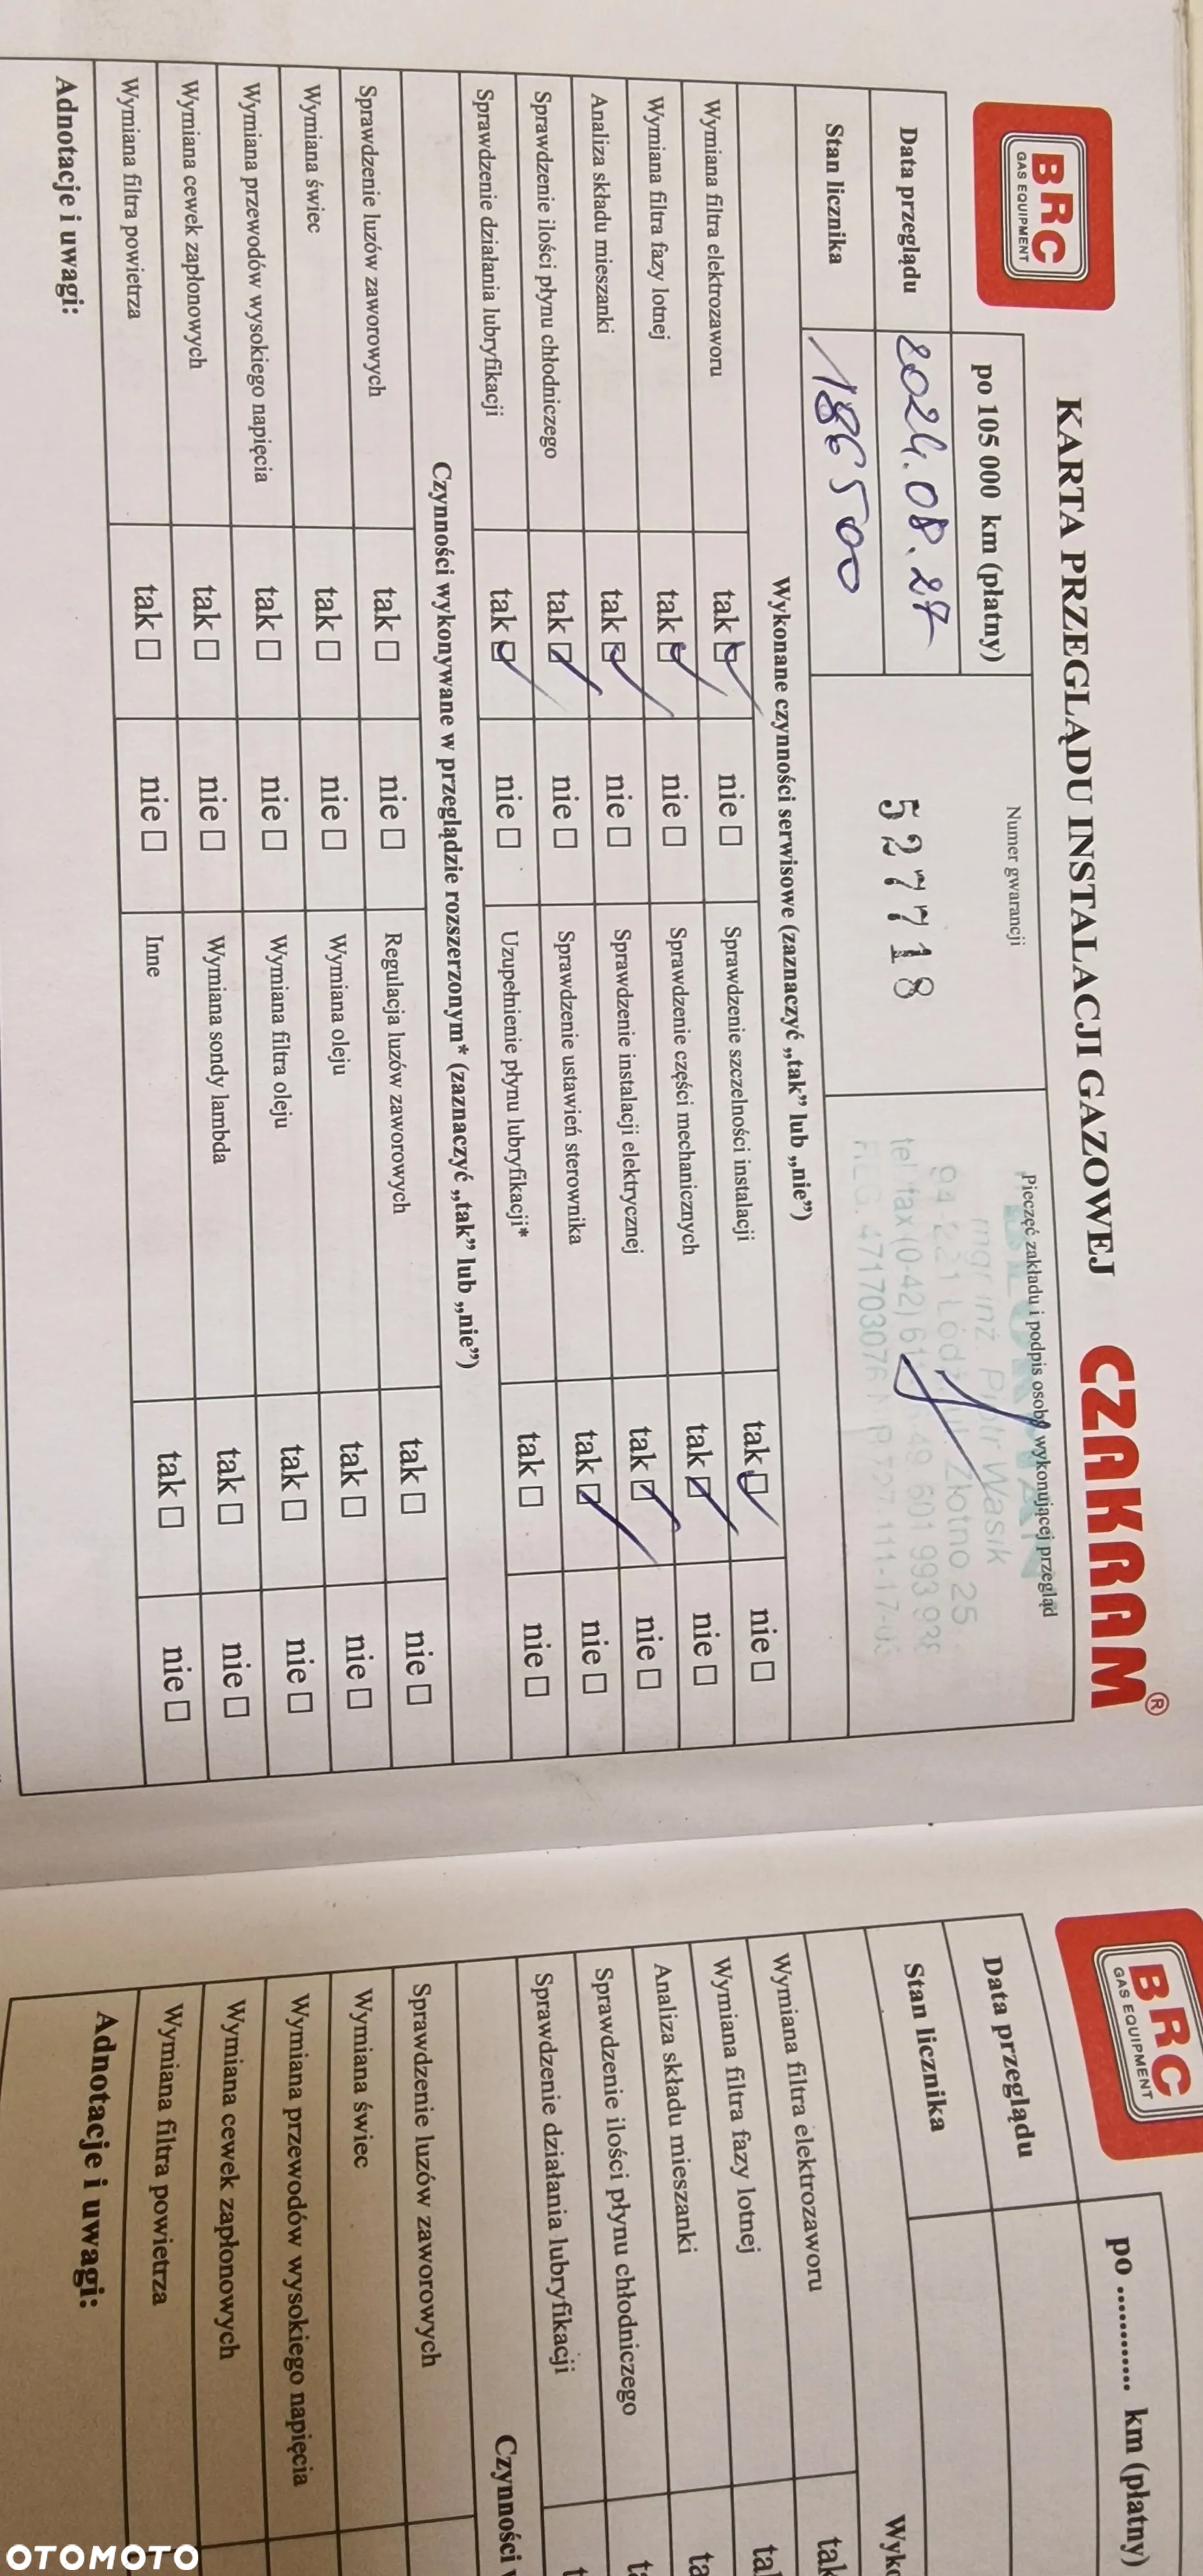 BRC
GAS EQUIPMENT
KARTA PRZEGLĄDU INSTALACJI GAZOWEJ
CZAKRAM®
po 105 000 km (płatny)
Numer gwarancji
Pieczęć zakładu i podpis osoby wykonującej przegląd
Data przeglądu
2024.08.27
527718
mgr inż. Piotr Wasik
Złotno 25
Stan licznika
186500
Wykonane czynności serwisowe (zaznaczyć „tak” lub „nie”)
Wymiana filtra elektrozaworu tak ☑ nie □ Sprawdzenie szczelności instalacji tak ☑ nie □
Wymiana filtra fazy lotnej tak ☑ nie □ Sprawdzenie części mechanicznych tak ☑ nie □
Analiza składu mieszanki tak ☑ nie □ Sprawdzenie instalacji elektrycznej tak ☑ nie □
Sprawdzenie ilości płynu chłodniczego tak ☑ nie □ Sprawdzenie ustawień sterownika tak ☑ nie □
Sprawdzenie działania lubryfikacji tak ☑ nie □ Uzupełnienie płynu lubryfikacji* tak □ nie □
Czynności wykonywane w przeglądzie rozszerzonym* (zaznaczyć „tak” lub „nie”)
Sprawdzenie luzów zaworowych tak □ nie □ Regulacja luzów zaworowych tak □ nie □
Wymiana świec tak □ nie □ Wymiana oleju tak □ nie □
Wymiana przewodów wysokiego napięcia tak □ nie □ Wymiana filtra oleju tak □ nie □
Wymiana cewek zapłonowych tak □ nie □ Wymiana sondy lambda tak □ nie □
Wymiana filtra powietrza tak □ nie □ Inne tak □ nie □
Adnotacje i uwagi:
BRC
GAS EQUIPMENT
po ............ km (płatny)
Data przeglądu
Stan licznika
Wyko
Wymiana filtra elektrozaworu tak
Wymiana filtra fazy lotnej tak
Analiza składu mieszanki ta
Sprawdzenie ilości płynu chłodniczego ta
Sprawdzenie działania lubryfikacji t
Czynności w
Sprawdzenie luzów zaworowych
Wymiana świec
Wymiana przewodów wysokiego napięcia
Wymiana cewek zapłonowych
Wymiana filtra powietrza
Adnotacje i uwagi:
OTOMOTO